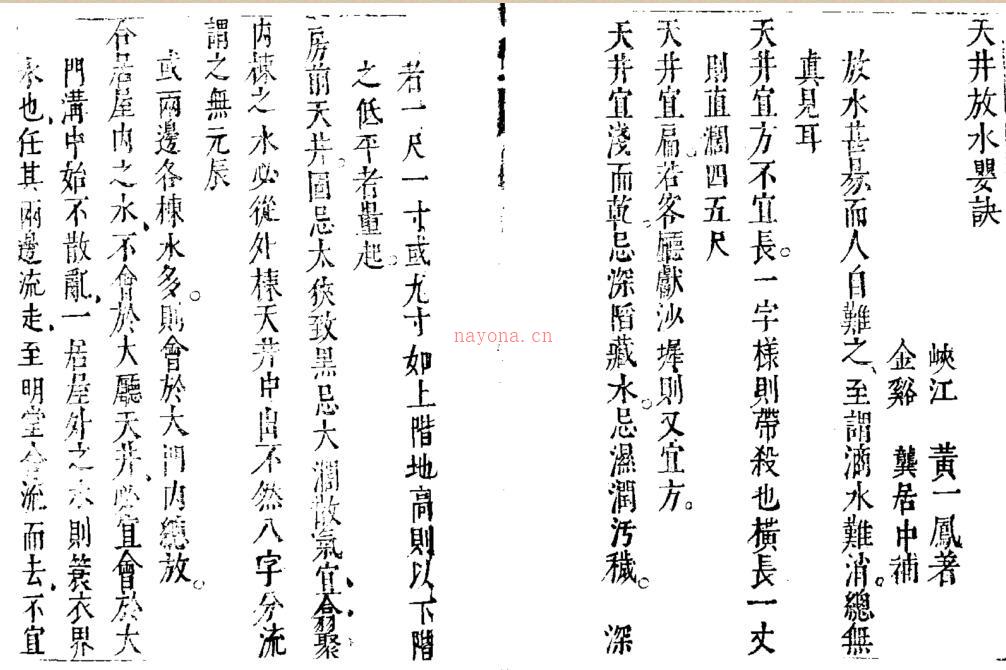 天井放水嬰訣
峽江 黃一鳳著
金谿 龔居中補
放水甚易而人自難之至謂滴水難消總無
真見耳
天井宜方不宜長一字樣則帶殺也橫長一丈
則直濶四五尺
天井宜扁若客廳獻沙墀則又宜方
天井宜淺而乾忌深陷藏水忌濕潤汚穢 深
若一尺一寸或九寸如上階地高則以下階
之低平者量起
房前天井固忌太狹致黑忌大濶散氣宜翕聚
內棟之水必從外棟天井中出不然八字分流
謂之無元辰
或兩邊各棟水多則會於大門內總放
合居屋內之水不會於大廳天井必宜會於大
門溝中始不散亂一居屋外之水則簑衣界
水也任其兩邊流走至明堂合流而去不宜
nayona.cn